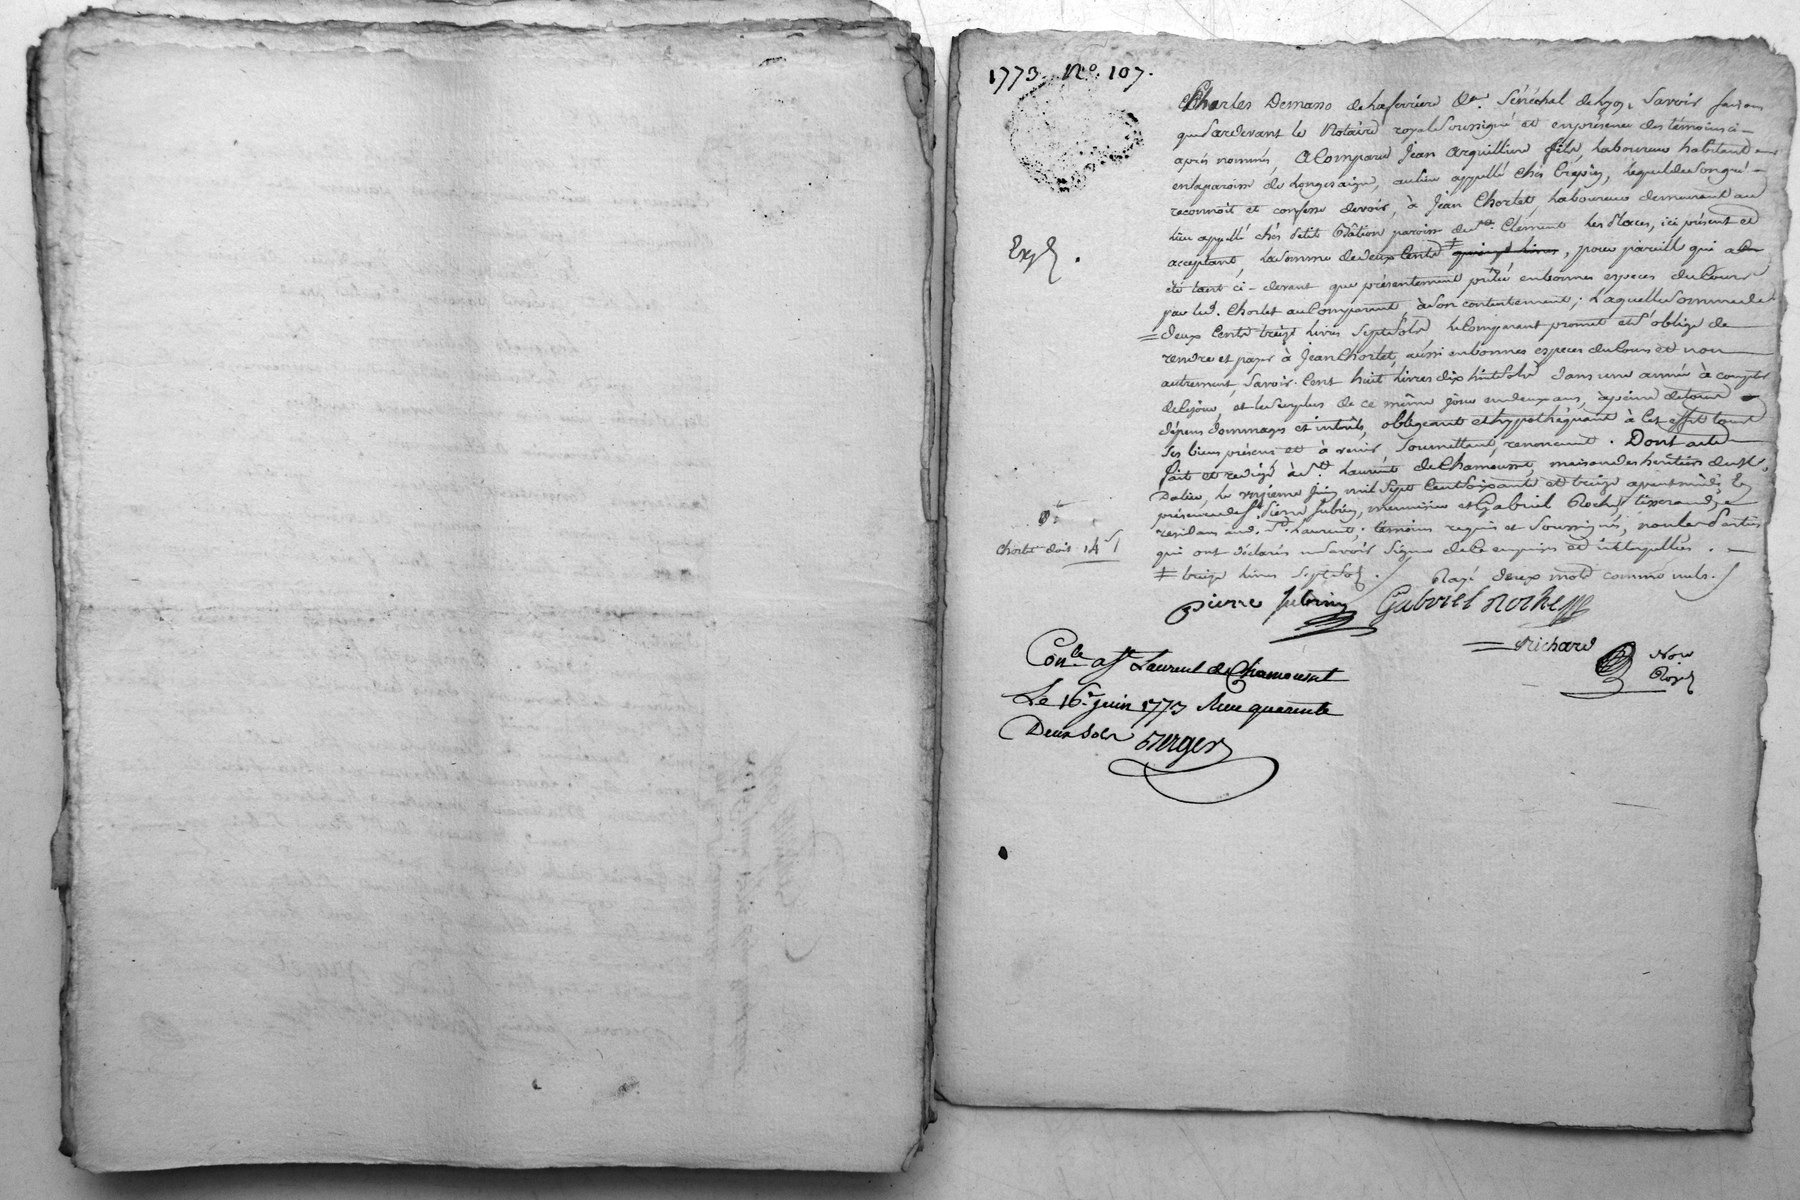 1773. No. 107.
Charles Demasso de la ferriere &a. Sénéchal de Lyon, Savoir faisons
que Pardevant le Notaire royal Soussigné et en présence des témoins ci-
après nommés, A Comparu Jean Arquilliere fils, Laboureur habitant
en la paroisse de Longesaigne, au lieu appellé Chés Crépin, Lequel de Son gré
reconnoit et confesse devoir, à Jean Chortet, Laboureur demeurant au
Lieu appellé chés Petit paroisse de St. Clement Les Places, ici présent et
acceptant, La Somme de deux Cents ‡ quinze Livres, pour pareille qui a
été tant ci-devant que présentement prêtée en bonnes éspeces du Cours
par led. Chortet au Comparant, à Son contentement; Laquelle Somme de
deux Cents treize Livres Sept Sols Le Comparant promet et S'oblige de
rendre et payer à Jean Chortet, aussi en bonnes especes du Cours et non
autrement, Savoir. Cent huit Livres dix huit Sols dans une année à compter
de Ce jour, et le Surplus de ce même jour en deux ans, à peine de tous
dépens dommages et interêts, obligeant et hypothéquant à Cet effet tous
Ses biens présens et à venir, Soumettant, renonçant. Dont acte
fait et redigé à St. Laurent de Chamousset, maison des héritiers du Sr.
Le onzieme juin mil Sept Cent Soixante et treize avant midi, En
présence de Sr. Pierre Jubin, menuisier et Gabriel Roche, tixerand,
residans aud. St. Laurent, témoins requis et Soussignés, non les Parties
qui ont déclarés ne Savoir Signer de Ce enquises et interpellées.
‡ treize Livres Sept Sols. Rayé deux mots comme nuls.
Exp.
Chortet doit 14 s
pierre Jubin Gabriel Roche
Richard Nore
Royal
Conlé a St Laurent de Chamousset
Le 16e juin 1773 Reçu quarante
Deux Sols Berger